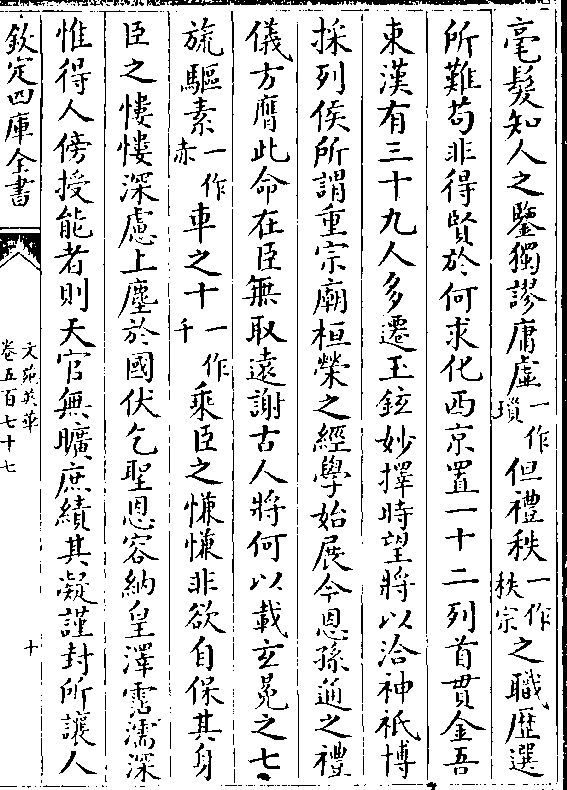 毫髮知人之鑒獨謬庸虛一作瑣但禮秩一作秩宗之職歴選
所難苟非得賢於何求化西京置一十二列首貫金吾
東漢有三十九人多遷玉鉉妙擇時望將以洽神祇博
採列侯所謂重宗廟桓榮之經學始展今恩孫通之禮
儀方膺此命在臣無取逺謝古人將何以載玄冕之七
旒驅素一作赤車之十一作千乘臣之慊慊非欲自保其身
臣之悽悽深慮上塵於國伏乞聖恩容納皇澤霑濡深
惟得人傍授能者則天官無曠庶績其凝謹封所讓人
欽定四庫全書
文苑英華
卷五百七十七
十